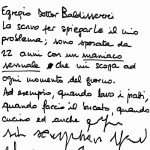 Egregio Dottor Baldisseroi
Le scrivo per spiegarle il mio
problema; sono sposata da
22 anni con un maniaco
sessuale e che mi scopa ad
ogni momento del giorno.
Ad esempio, quando lavo i piatti,
quando faccio il bucato, quando
cucino ed anche